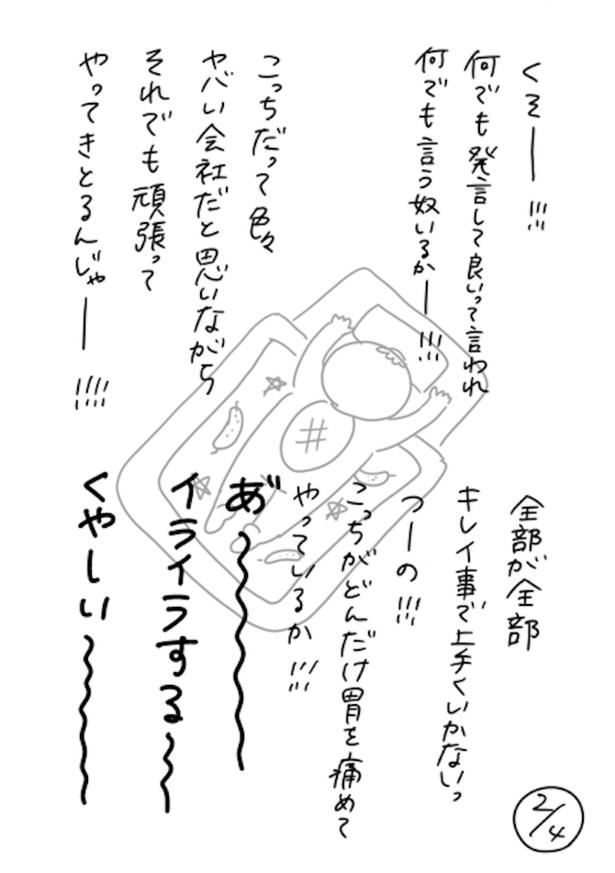 くそー!!!
何でも発言して良いって言われ
何でも言う奴いるかー!!!!
こっちだって色々
ヤバい会社だと思いながら
それでも頑張って
やってきとるんじゃー!!!!
全部が全部
キレイ事で上手くいかないっ
つーの!!!
こっちがどんだけ胃を痛めて
やっているか!!!
あ゛〜〜〜
イライラする〜
くやしい〜〜〜
2/4